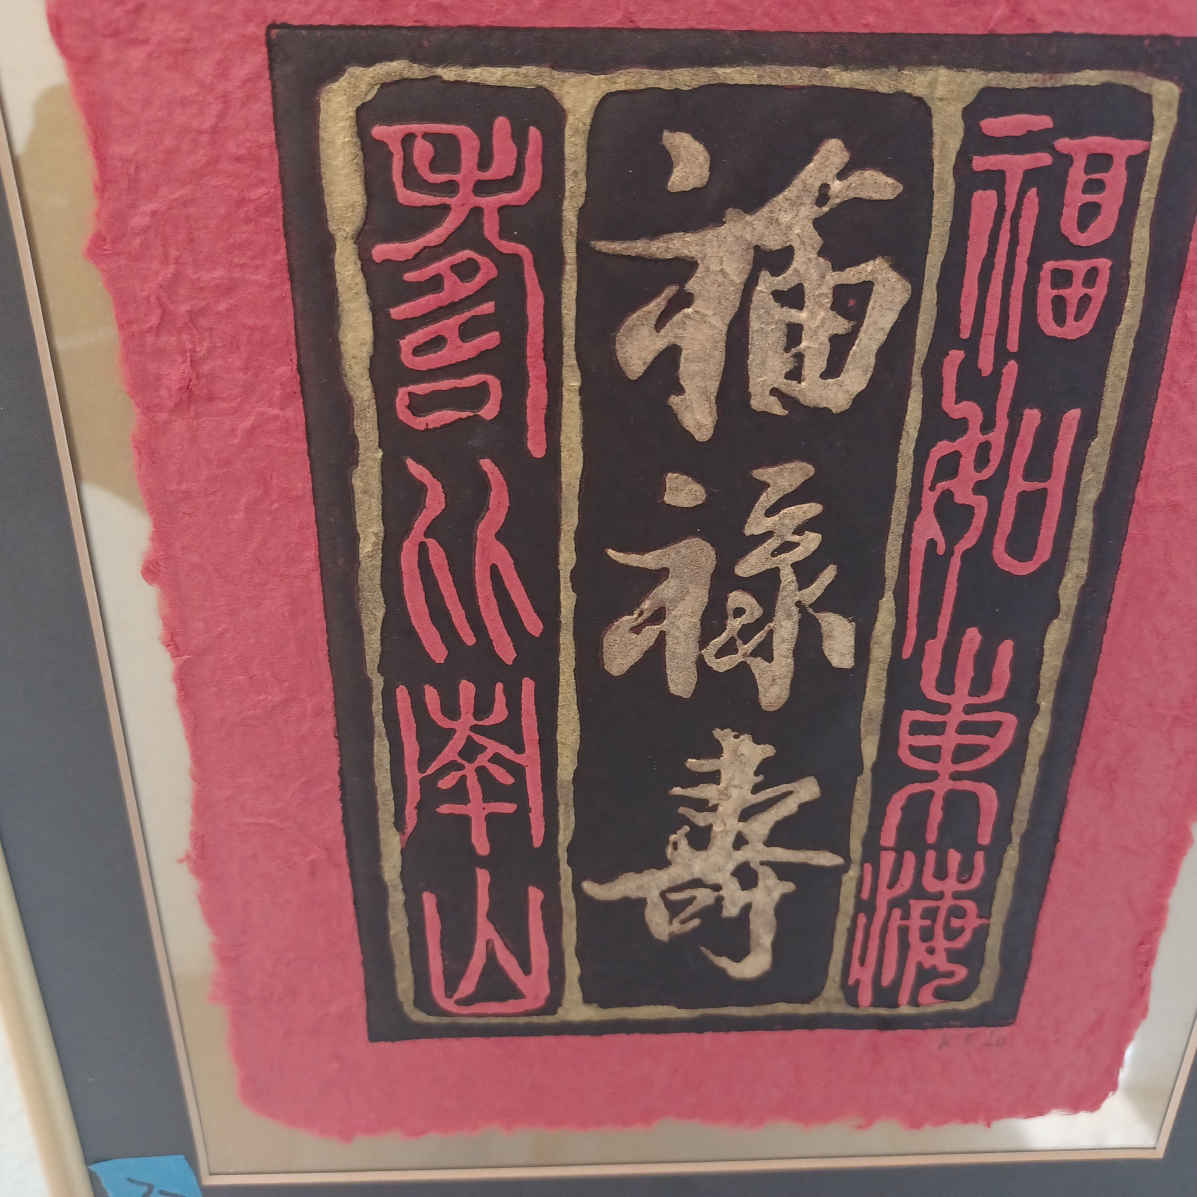 福如東海
福祿壽
壽比南山